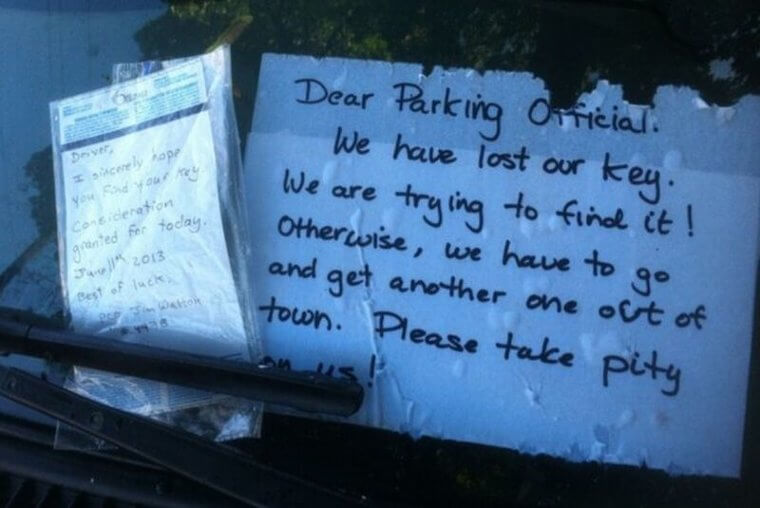 Driver,
I sincerely hope
you find your key.
Consideration
granted for today.
June 11th 2013
Best of luck,
Jim Watson
Dear Parking Official.
We have lost our key.
We are trying to find it!
Otherwise, we have to go
and get another one out of
town. Please take pity
on us!